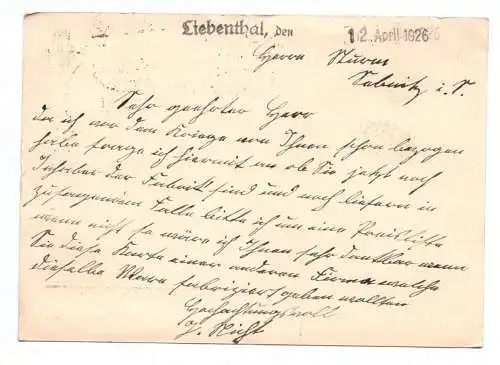 Liebenthal, den 12. April 1926
Herrn Sturm
Sebnitz i. S.
Sehr geehrter Herr
da ich vor dem Kriege von Ihnen schon bezogen
habe frage ich hiermit an ob Sie jetzt noch
Inhaber der Fabrik sind und noch liefern in
zusagendem Falle bitte ich um eine Preisliste
wenn nicht so wäre ich Ihnen sehr dankbar wenn
Sie diese Karte einer anderen Firma welche
dieselbe Ware fabriziert geben wollten
Hochachtungsvoll